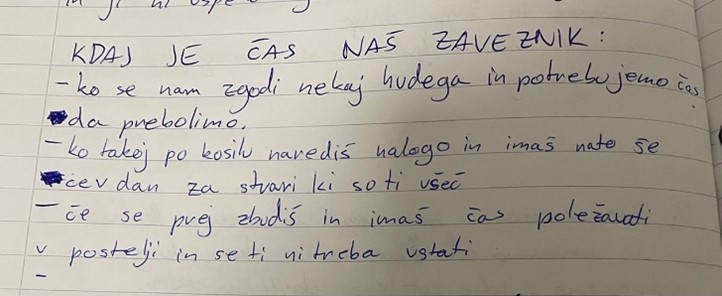 KDAJ JE ČAS NAŠ ZAVEZNIK:
- ko se nam zgodi nekaj hudega in potrebujemo čas
da prebolimo.
- ko takoj po kosilu narediš nalogo in imaš nato še
cev dan za stvari ki so ti všeč
- če se prej zbudiš in imaš čas poležavati
v postelji in se ti ni treba ustati
-